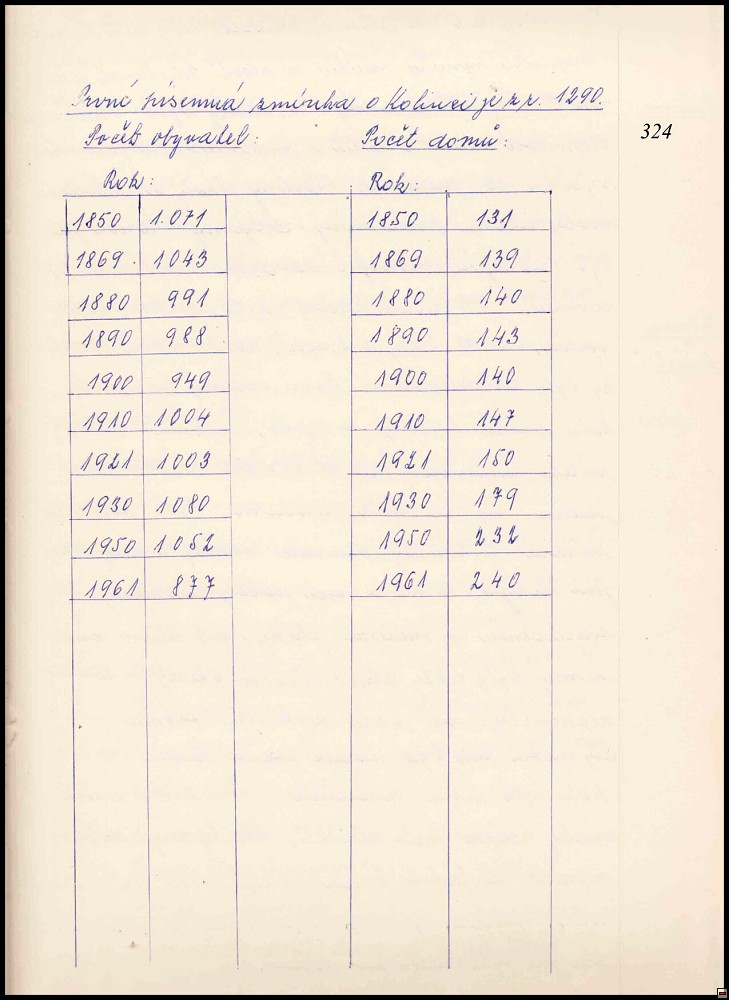 První písemná zmínka o Kolinci je z r. 1290.
324
Počet obyvatel: Počet domů:
Rok: Rok:
1850 1.071 1850 131
1869. 1043 1869 139
1880 991 1880 140
1890 988 1890 143
1900 949 1900 140
1910 1004 1910 147
1921 1003 1921 150
1930 1080 1930 179
1950 1052 1950 232
1961 877 1961 240